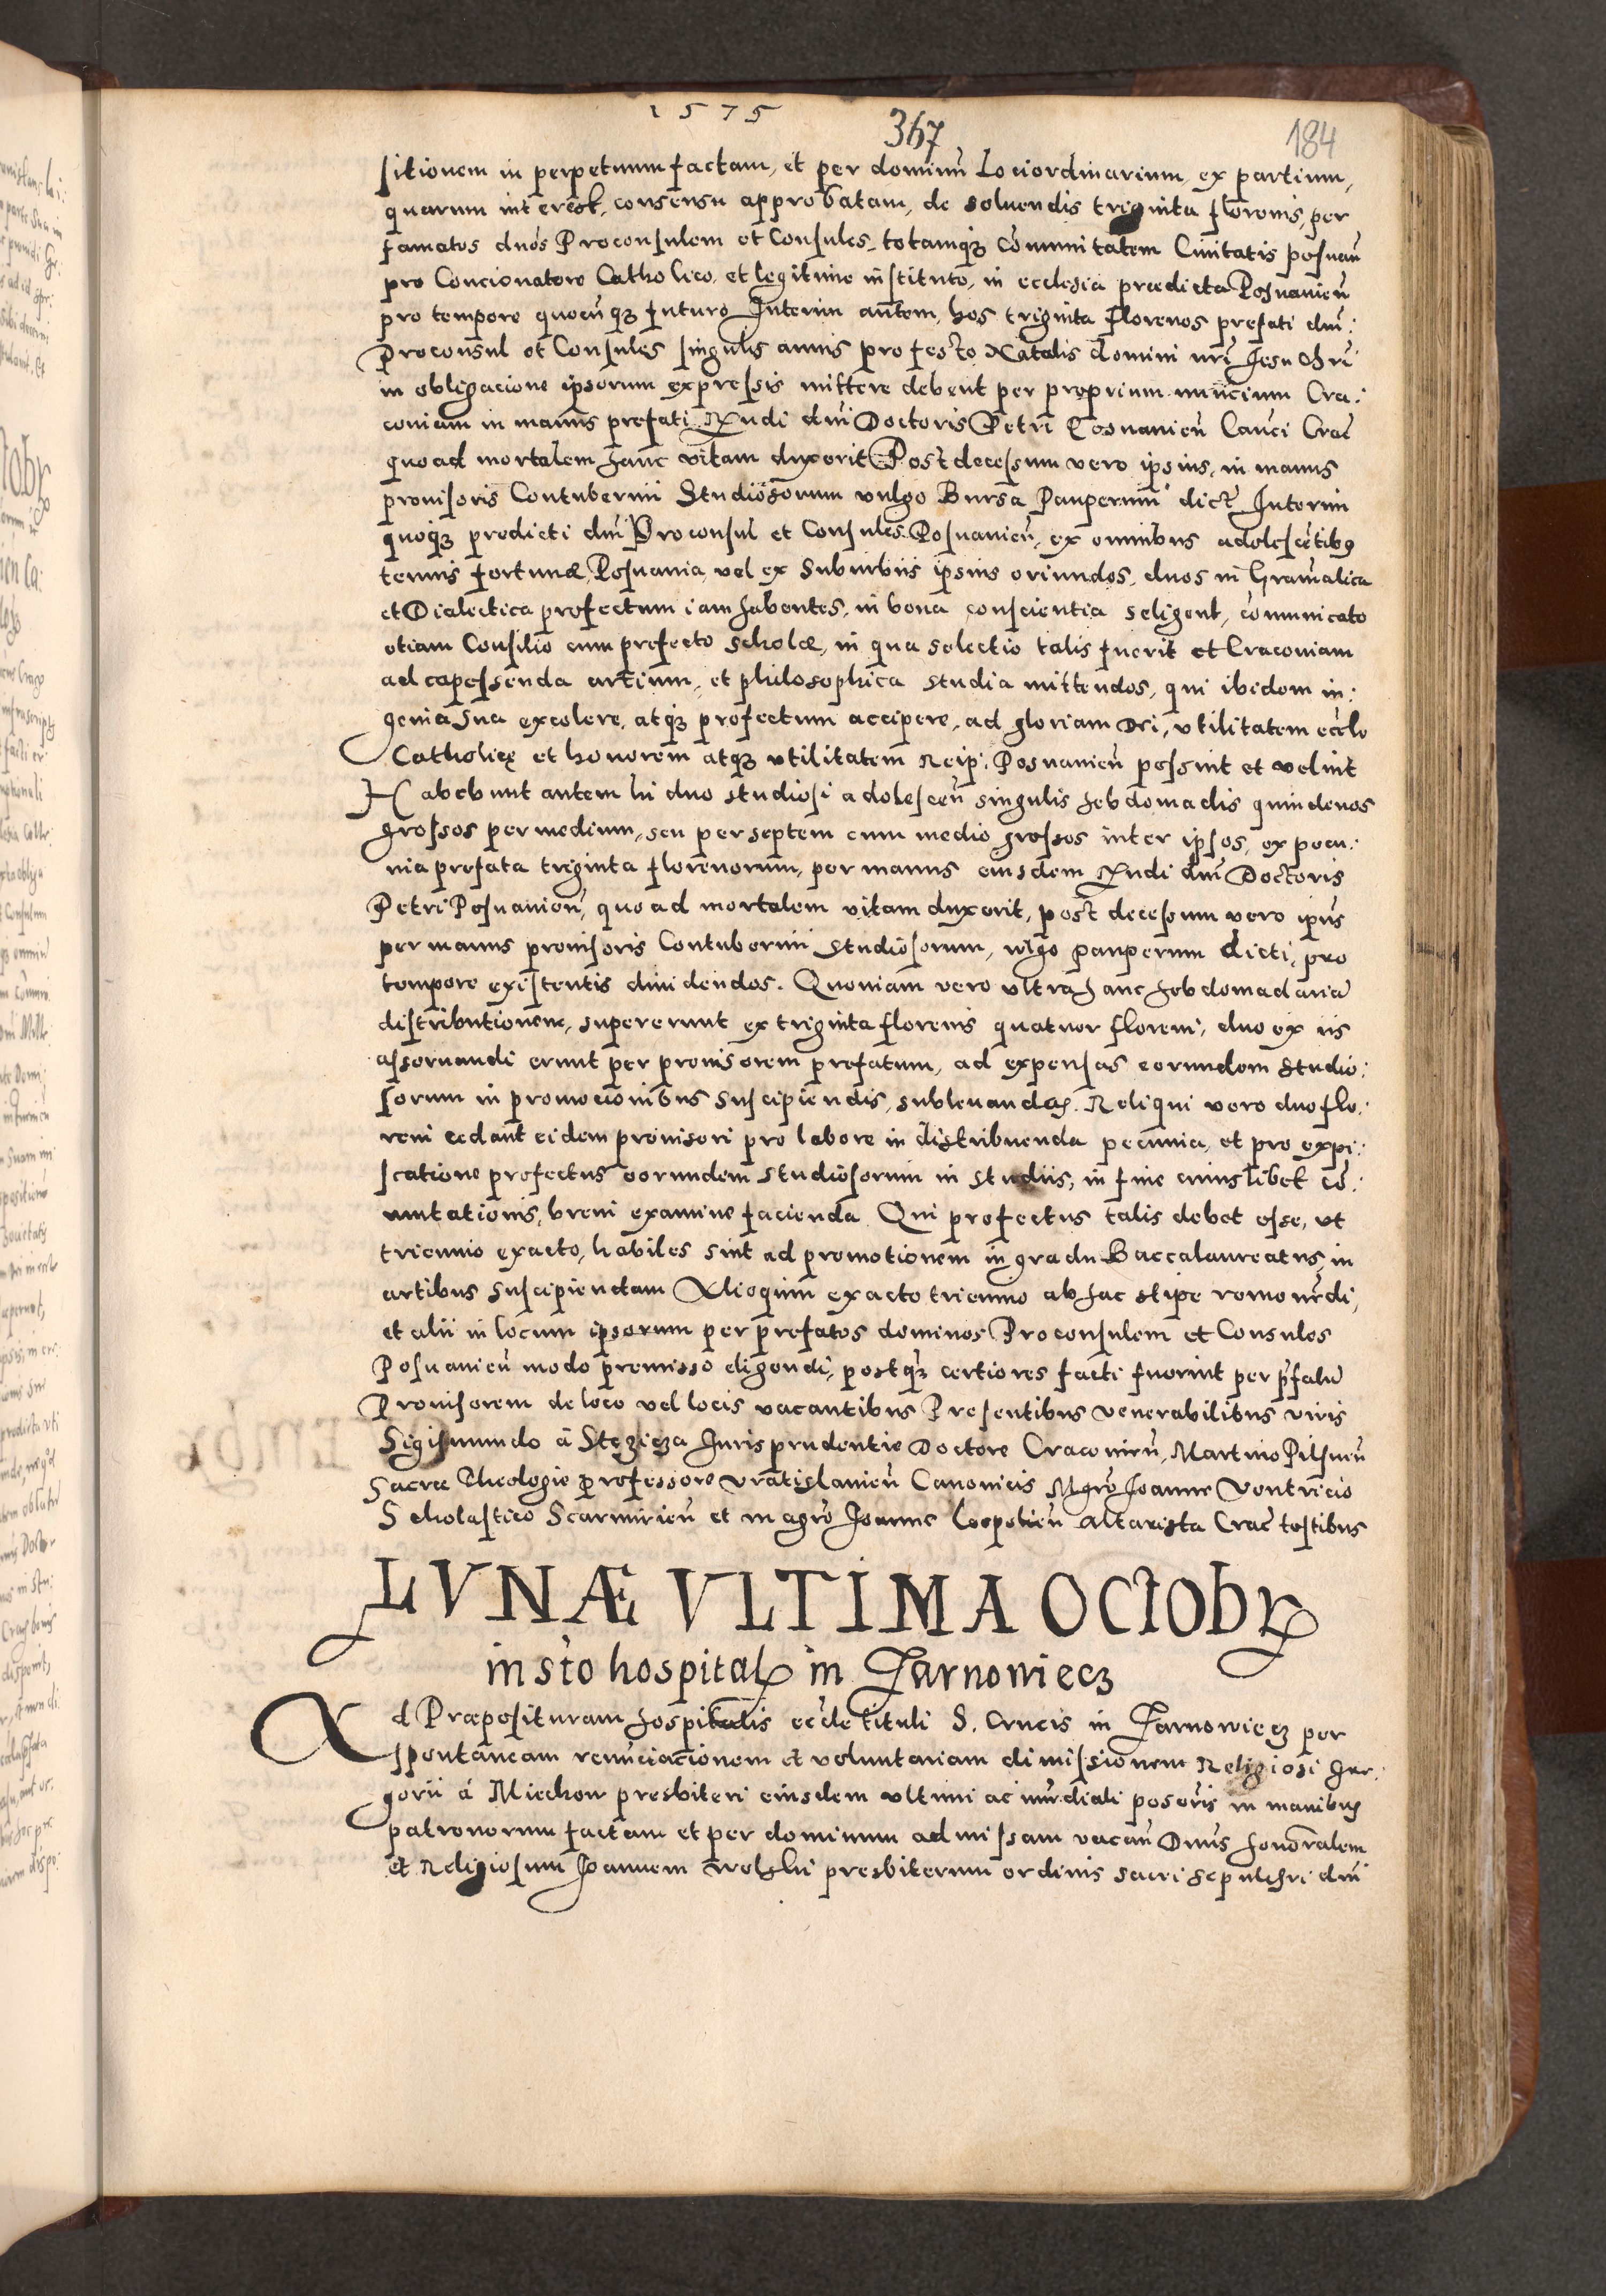 1575
367
184
sitionem in perpetuum factam, et per dominū Lociordinarium, ex partium,
quarum interest, consensu approbatam, de soluendis triginta florenis, per
famatos dnós Proconsulem et Consules, totamqз Cōmunitatem Ciuitatis posnań
pro Concionatore Catholico, et legitime instituto, in ecclesia prædicta Posnanień
pro tempore quocūqз futuro Interim autem, hos triginta florenos prefati dni:
Proconsul et Consules singulis annis pro festo Natalis domini nri Jesu Chri
in obligacione ipsorum expressis mittere debent per proprium nuncium Cra:
couiam in manus prefati Rndi dni Doctoris Petri Posnanień Canci Crac
quoad mortalem hanc vitam duxerit Post decessum vero ipsius, in manus
prouisoris Contubernii Studiosorum vulgo Bursa Pauperum dict Interim
quoqз predicti dni Proconsul et Consules Posnanień, ex omnibus adolescētibꝯ
tenuis fortunæ, Posnania, vel ex Suburbiis ipsius oriundos, duos in Gramatica
et Dialectica profectum iam habentes, in bona conscientia seligent, cōmunicato
etiam Consilio cum prefecto scholæ, in qua selectio talis fuerit et Cracouiam
ad capessenda artium, et philosophica studia mittendos, qui ibidem in:
genia sua excolere, atqз profectum accipere, ad gloriam Dei, vtilitatem eccle
Catholicę et honorem atqз vtilitatem Reip. Posnanień possint et velint
Habebunt autem hi duo studiosi adolesceń singulis hebdomadis quindenos
grossos per medium, seu per septem cum medio grossos inter ipsos, ex pecu:
nia prefata triginta florenorum, per manus eiusdem Rndi dni Doctoris
Petri Posnanień, quoad mortalem vitam duxerit, post decessum vero ipius
per manus prouisoris Contubernii studiosorum, vulgo pauperum dicti, pro
tempore existentis diuidendos. Quoniam vero vltra hanc hebdomadariā
distributionem, supererunt ex triginta florenis quatuor floreni, duo ex iis
asseruandi erunt per prouisorem prefatum, ad expensas eorundem studio:
sorum in promocionibus suscipiendis, subleuandas. Reliqui vero duo flo:
reni cedant eidem prouisori pro labore in distribuenda pecunia, et pro expi:
scatione profectus eorundem studiosorum in studiis, in fine cuiuslibet cō:
mutationis, breui examine facienda Qui profectus talis debet esse, vt
triennio exacto, habiles sint ad promotionem in gradu Baccalaureatus, in
artibus suscipiendam Alioquin exacto triennio ab hac stipe remouedi,
et alii in locum ipsorum per prefatos dominos Proconsulem et Consules
Posnanień modo premisso eligendi, postqз certiores facti fuerint per pfatū
Prouisorem de loco vel locis vacantibus Presentibus venerabilibus viris
Sigismundo á Stęzicza Jurisprudentie Doctore Cracouień, Martino Pilsneń
Sacræ Theologie professore vratislauień Canonicis Mgro Joanne Ventricio
Scholastico Scarmirień et magro Joanne Leopolień altarista Crac testibus
LVNÆ VLTIMA OCTOBR
in sto hospital in Jarnowiecz
Ad Præposituram hospitalis eccle tituli S. Crucis in Jarnowiecz per
spontaneam renunciacionem et voluntariam dimissionem Religiosi Gre:
gorii á Miechow presbiteri eiusdem vltimi ac imediati posoris in manibus
patronorum factam et per dominum admissam vacań Dnus honoralem
et Religiosum Joannem Wolski presbiterum ordinis sacri sepulchri dni